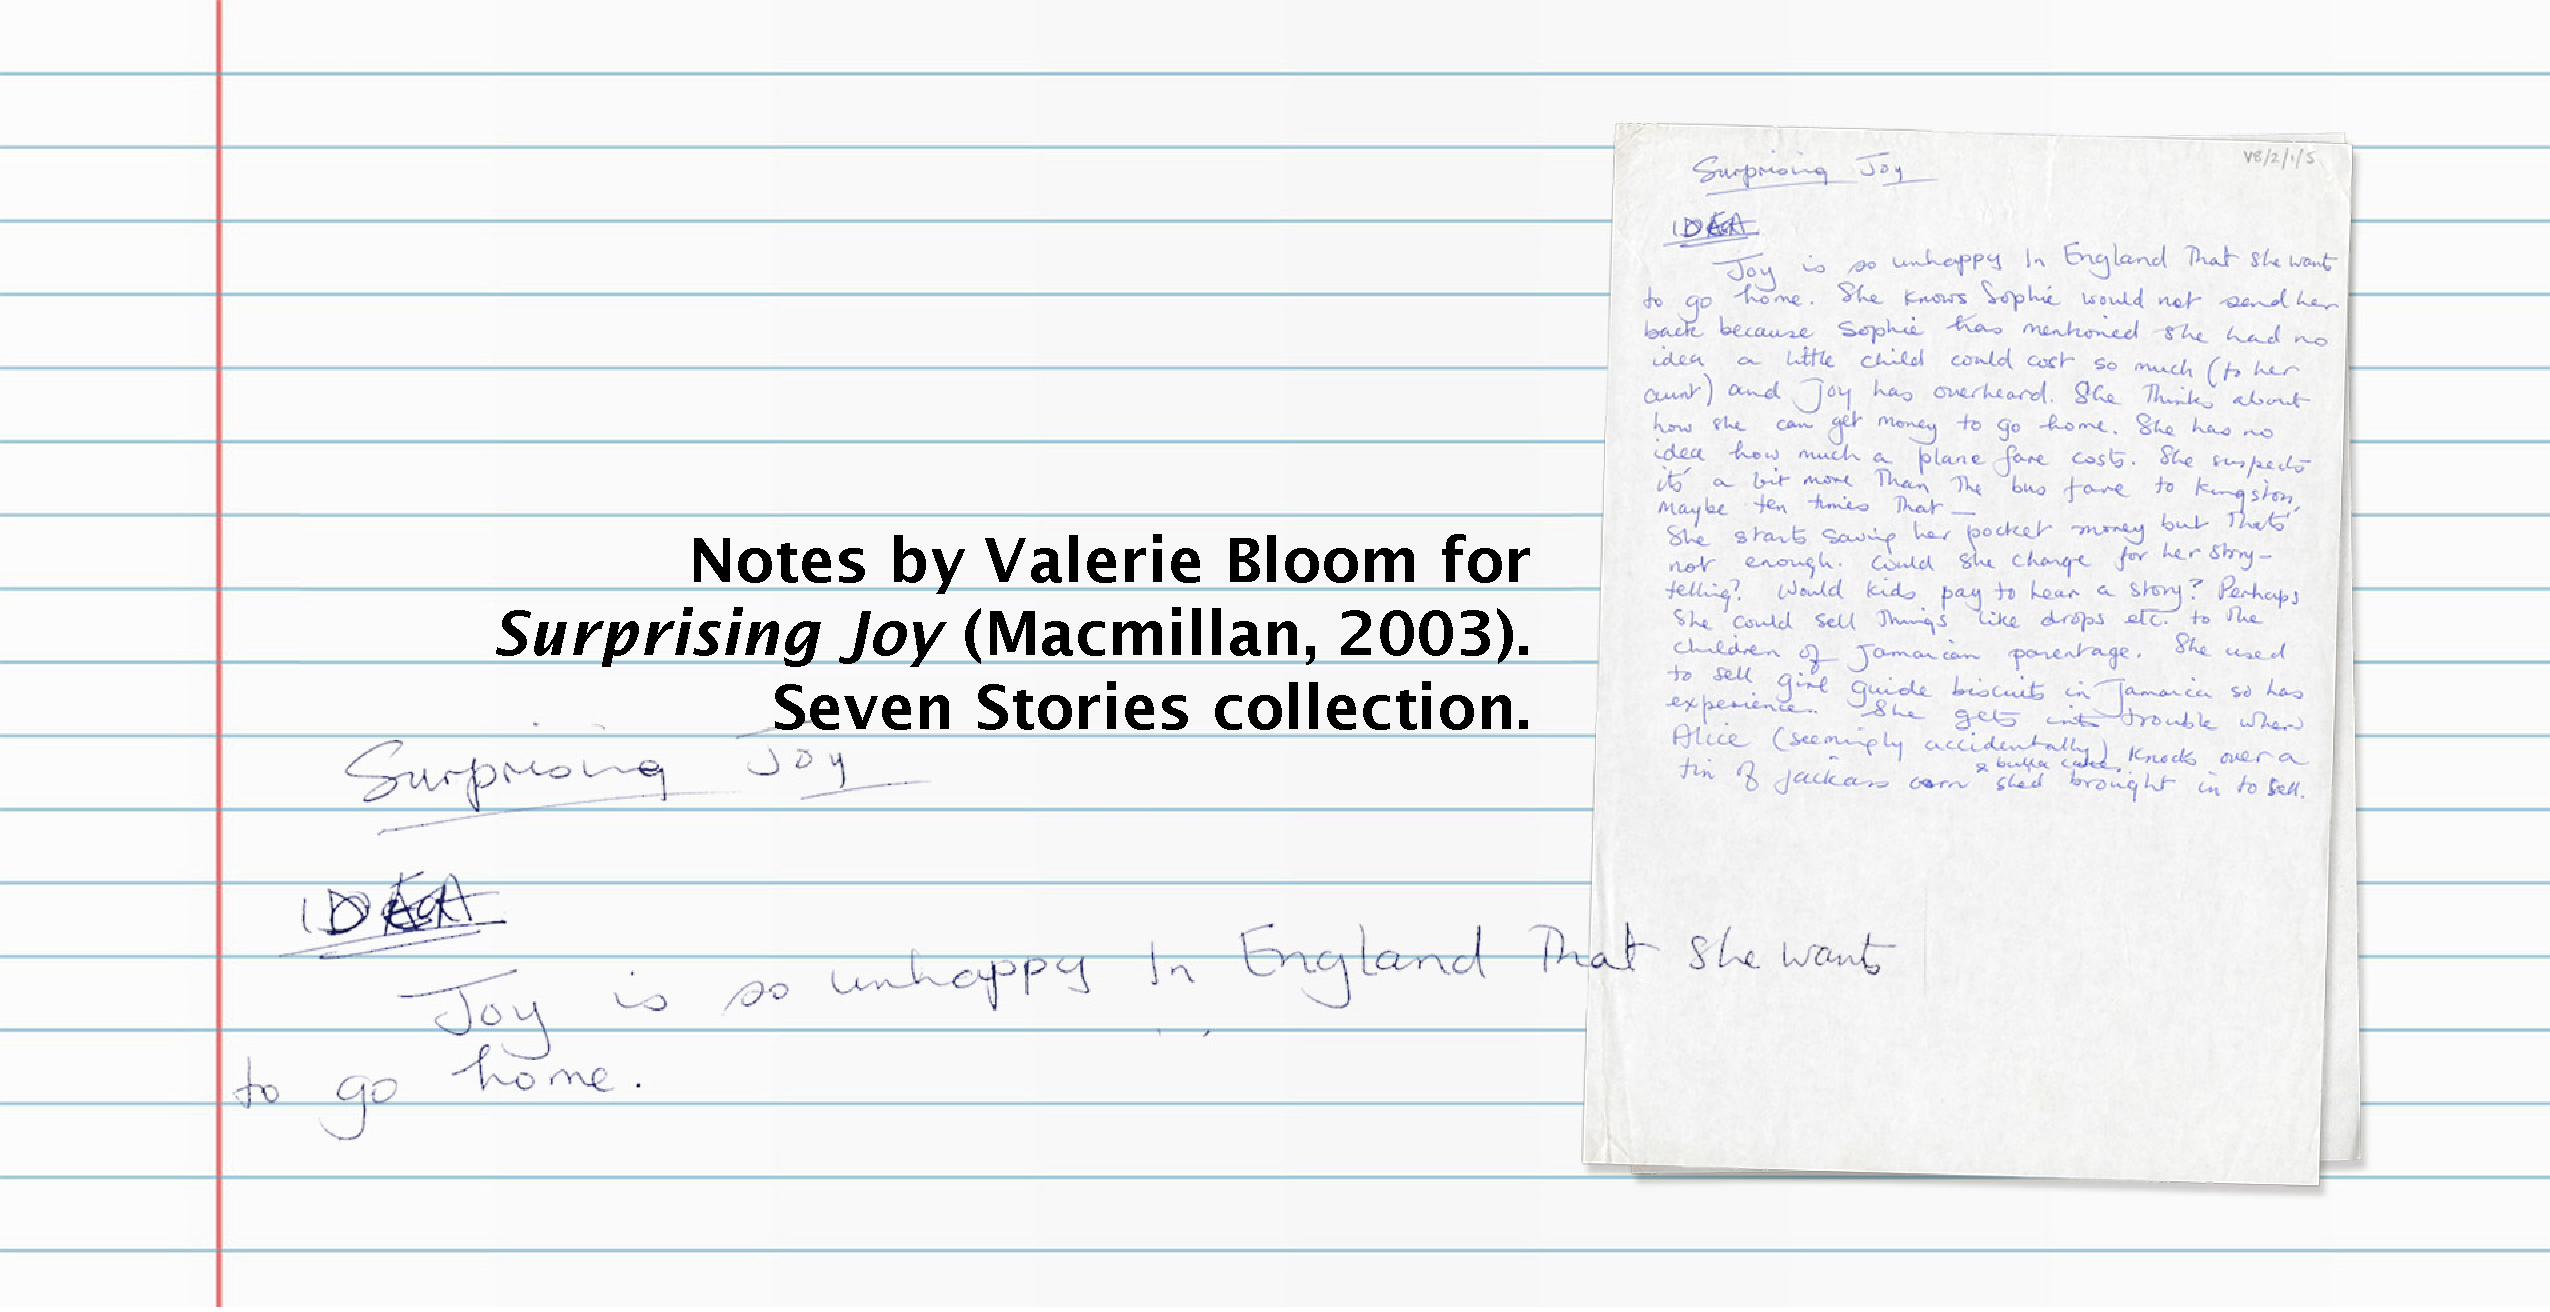 Notes by Valerie Bloom for
Surprising Joy (Macmillan, 2003).
Seven Stories collection.
Surprising Joy
IDEA
Joy is so unhappy In England That she wants
to go home.
VB/2/1/5
Surprising Joy
IDEA
Joy is so unhappy In England That she wants
to go home. She knows Sophie would not send her
back because Sophie has mentioned she had no
idea a little child could cost so much (to her
aunt) and Joy has overheard. She Thinks about
how she can get money to go home. She has no
idea how much a plane fare costs. She suspects
it's a bit more Than The bus fare to Kingston,
maybe ten times That —
She starts saving her pocket money but That's
not enough. Could she charge for her story-
telling? Would kids pay to hear a story? Perhaps
She could sell Things like drops etc. to The
children of Jamaican parentage. She used
to sell girl guide biscuits in Jamaica so has
experience. She gets into trouble when
Alice (seemingly accidentally) knocks over a
tin of jackass corn & bulla cakes she'd brought in to sell.